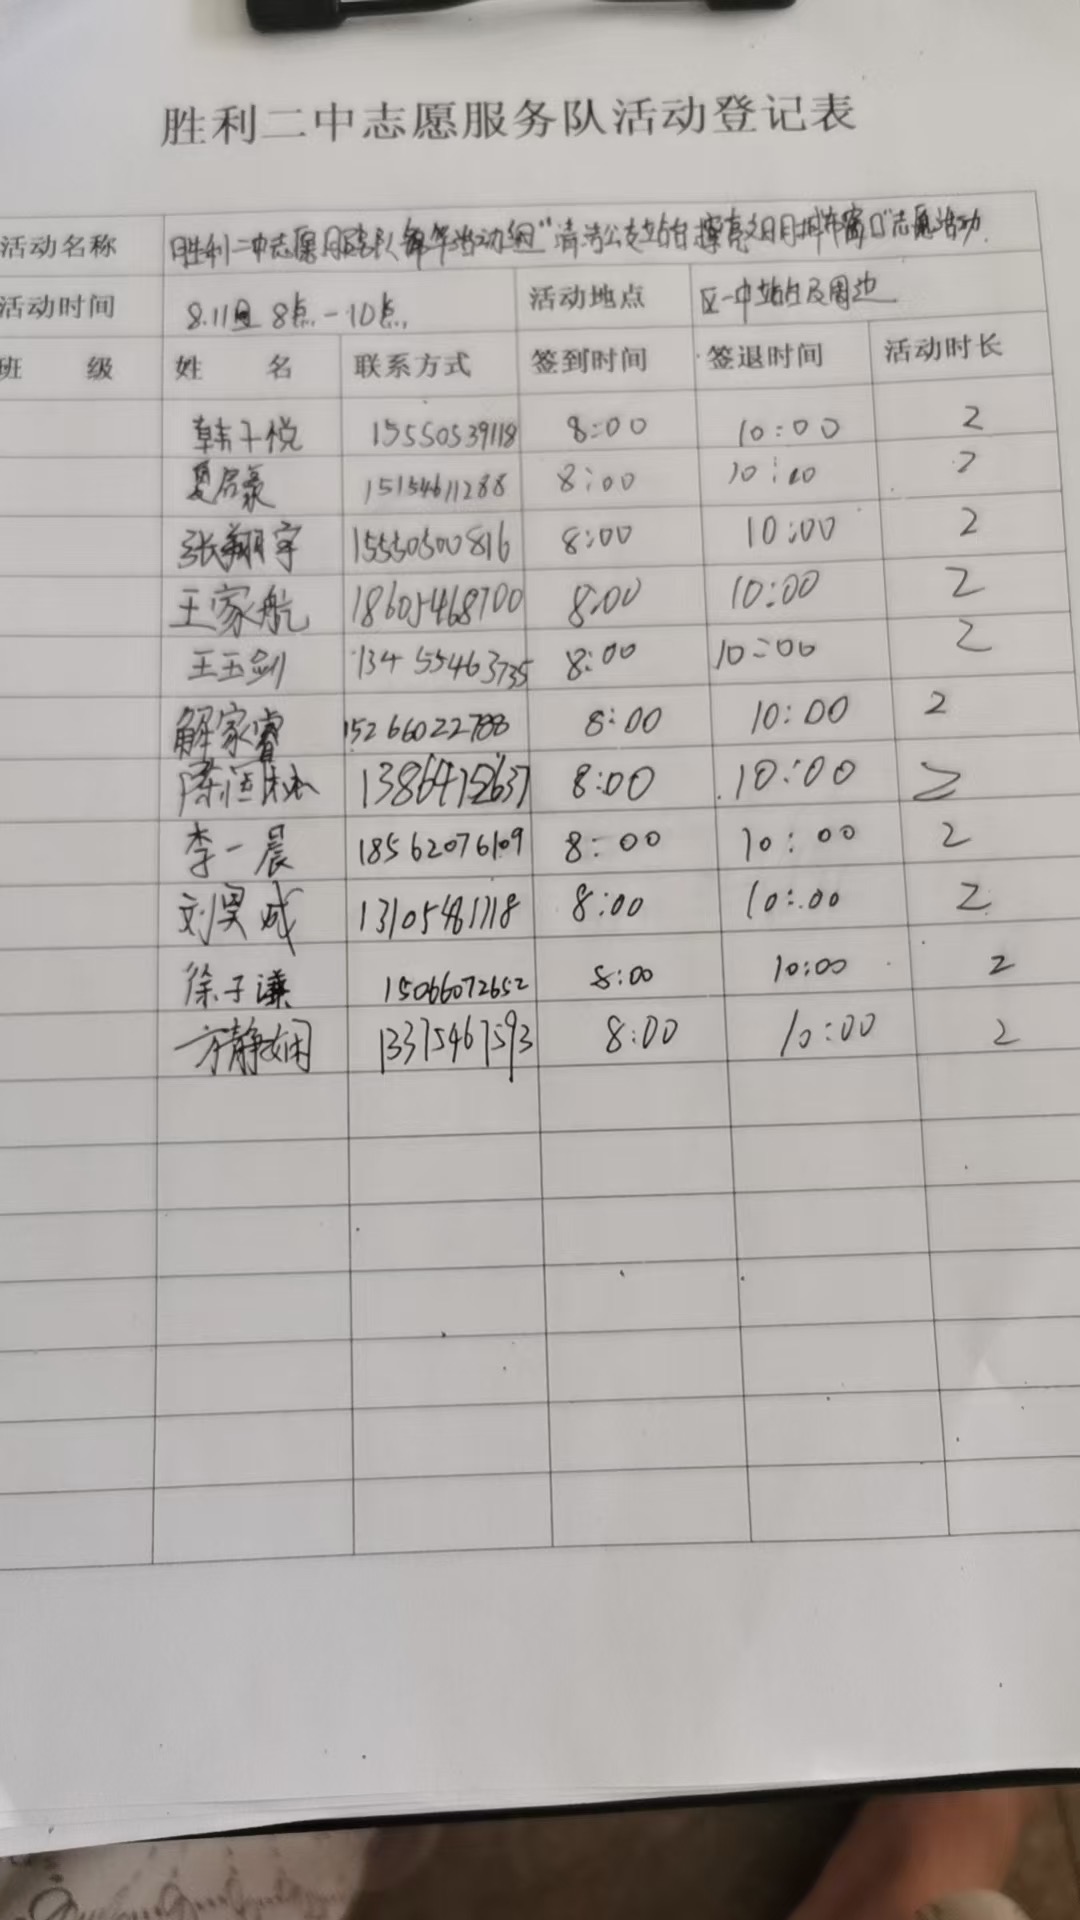 胜利二中志愿服务队活动登记表
活动名称 胜利二中志愿服务队 活动组"清洁公交站台 擦亮文明城市窗口"志愿活动
活动时间 8.11日 8点-10点 活动地点 区一中站点及周边
班 级 姓 名 联系方式 签到时间 签退时间 活动时长
韩千悦 15550539118 8:00 10:00 2
夏启豪 15154611288 8:00 10:00 2
张翔宇 15550500816 8:00 10:00 2
王家航 18605468700 8:00 10:00 2
王玉剑 13455463735 8:00 10:00 2
解家睿 15266022788 8:00 10:00 2
陈恒 8:00 10:00 2
李一晨 18562076109 8:00 10:00 2
刘昊成 13105481718 8:00 10:00 2
徐子谦 15066072652 8:00 10:00 2
方静娴 13375467593 8:00 10:00 2